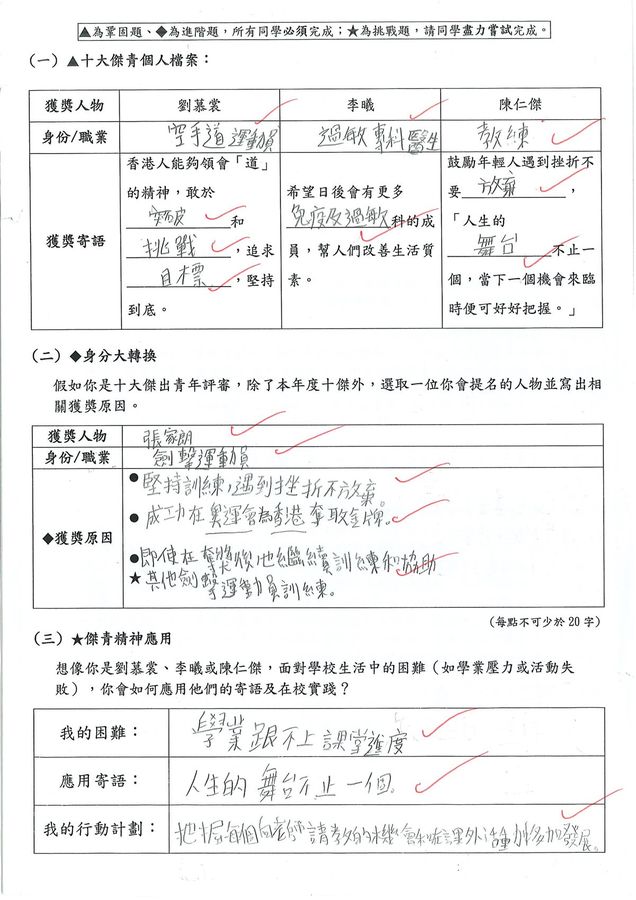 ▲為鞏固題、◆為進階題，所有同學必須完成；★為挑戰題，請同學盡力嘗試完成。
（一）▲十大傑青個人檔案：
獲獎人物 劉慕裳 李曦 陳仁傑
身份/職業 空手道運動員 過敏專科醫生 教練
獲獎寄語
香港人能夠領會「道」
的精神，敢於
突破 和
挑戰 ，追求
目標 ，堅持
到底。
希望日後會有更多
免疫及過敏 科的成
員，幫人們改善生活質
素。
鼓勵年輕人遇到挫折不
要 放棄 ，
「人生的
舞台 不止一
個，當下一個機會來臨
時便可好好把握。」
（二）◆身分大轉換
假如你是十大傑出青年評審，除了本年度十傑外，選取一位你會提名的人物並寫出相
關獲獎原因。
獲獎人物 張家朗
身份/職業 劍擊運動員
◆獲獎原因
●堅持訓練，遇到挫折不放棄。
●成功在奧運會為香港奪取金牌。
●即使在奪獎後也繼續訓練和協助
★其他劍擊運動員訓練。
（每點不可少於 20 字）
（三）★傑青精神應用
想像你是劉慕裳、李曦或陳仁傑，面對學校生活中的困難（如學業壓力或活動失
敗），你會如何應用他們的寄語及在校實踐？
我的困難： 學業跟不上課堂進度
應用寄語： 人生的舞台不止一個。
我的行動計劃： 把握每個向老師請教的機會和在課外活動多加發展。